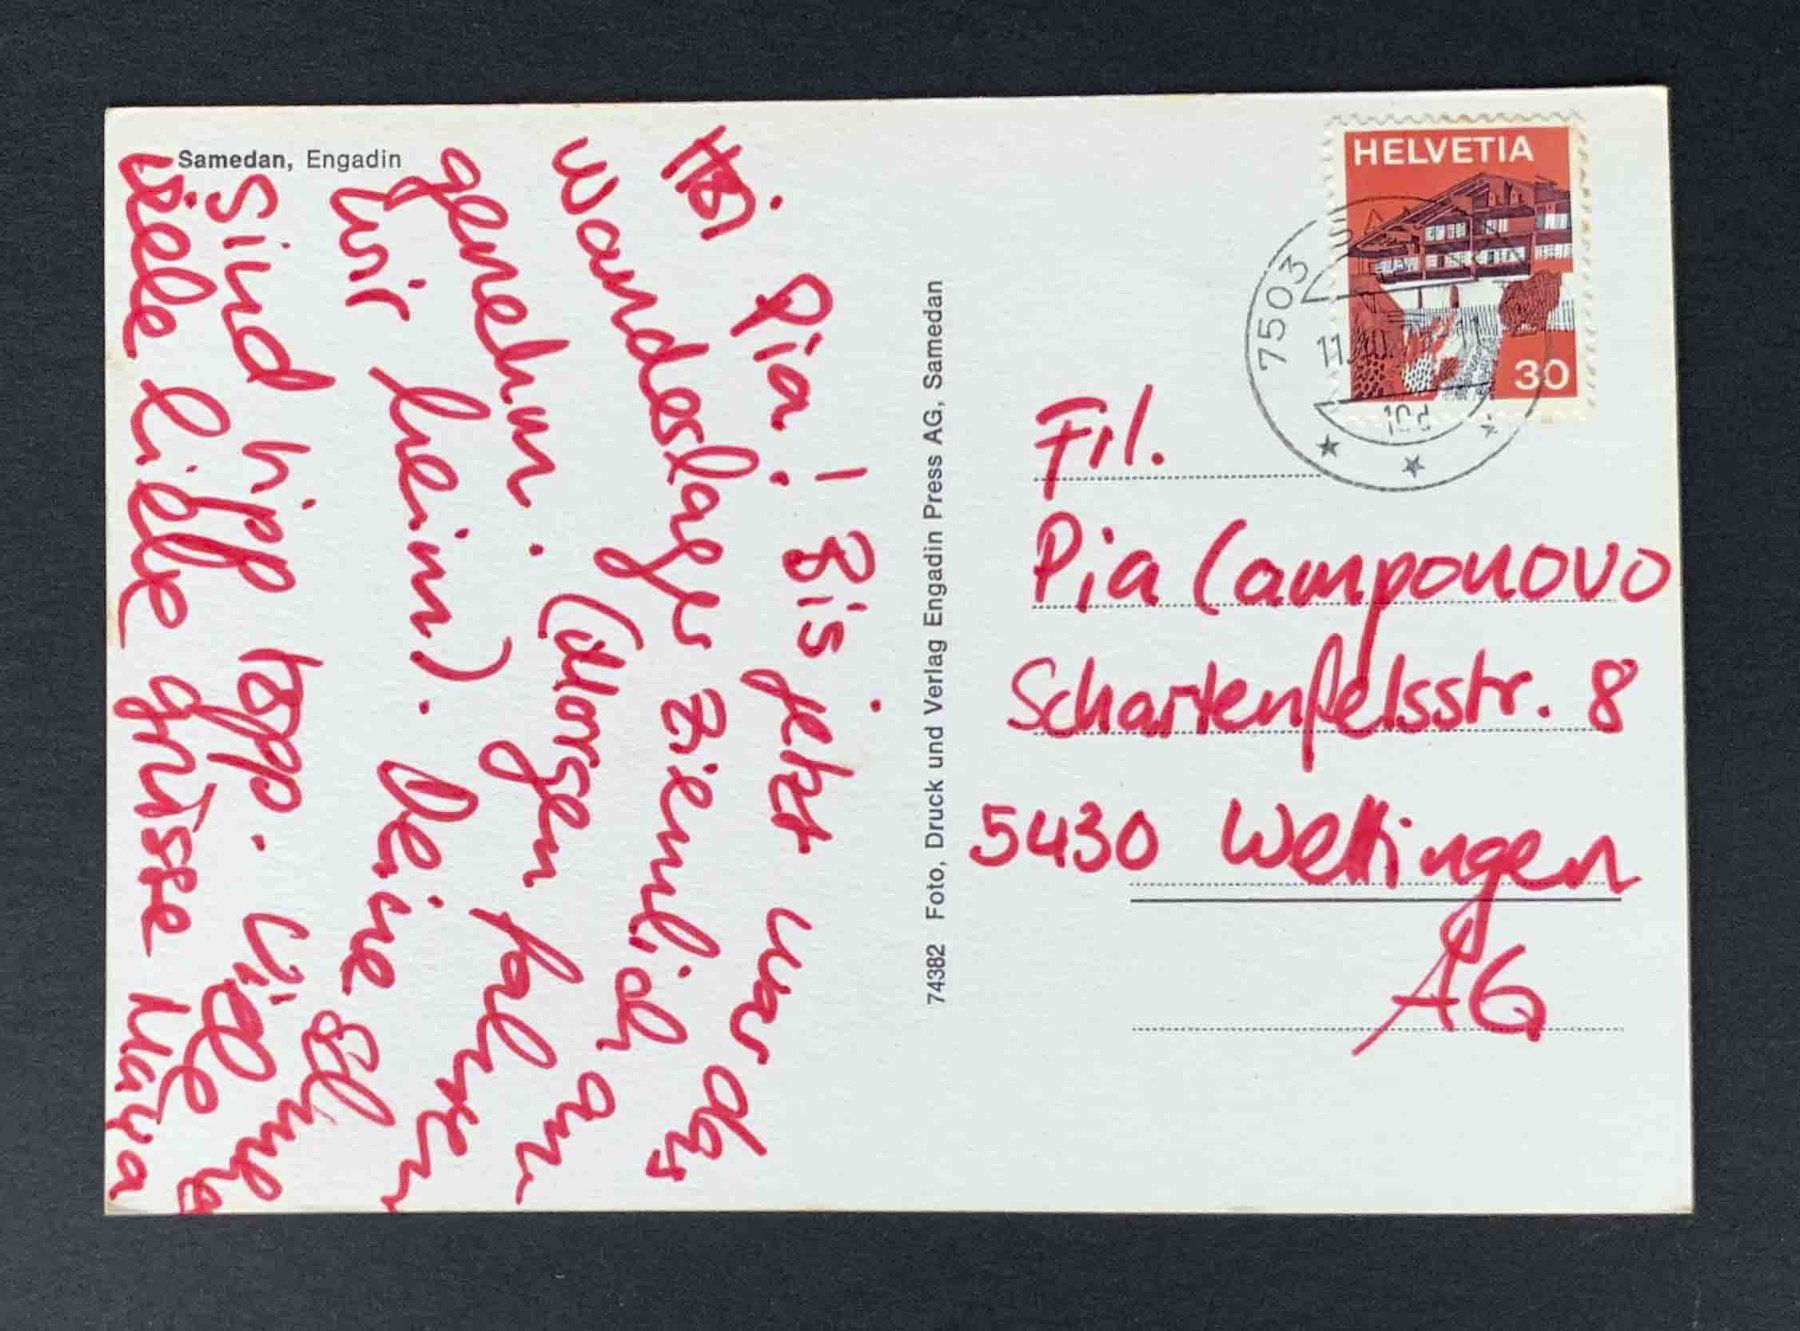 Samedan, Engadin
Hoi Pia! Bis jetzt war das
Wanderlager ziemlich an
genehm. (Morgen fahren
wir heim). Deine Schuhe
Sind hipp topp. Viele
viele liebe Grüsse Maya
74382 Foto, Druck und Verlag Engadin Press AG, Samedan
HELVETIA
30
7503
Frl.
Pia Camponovo
Schartenfelsstr. 8
5430 Wettingen
AG